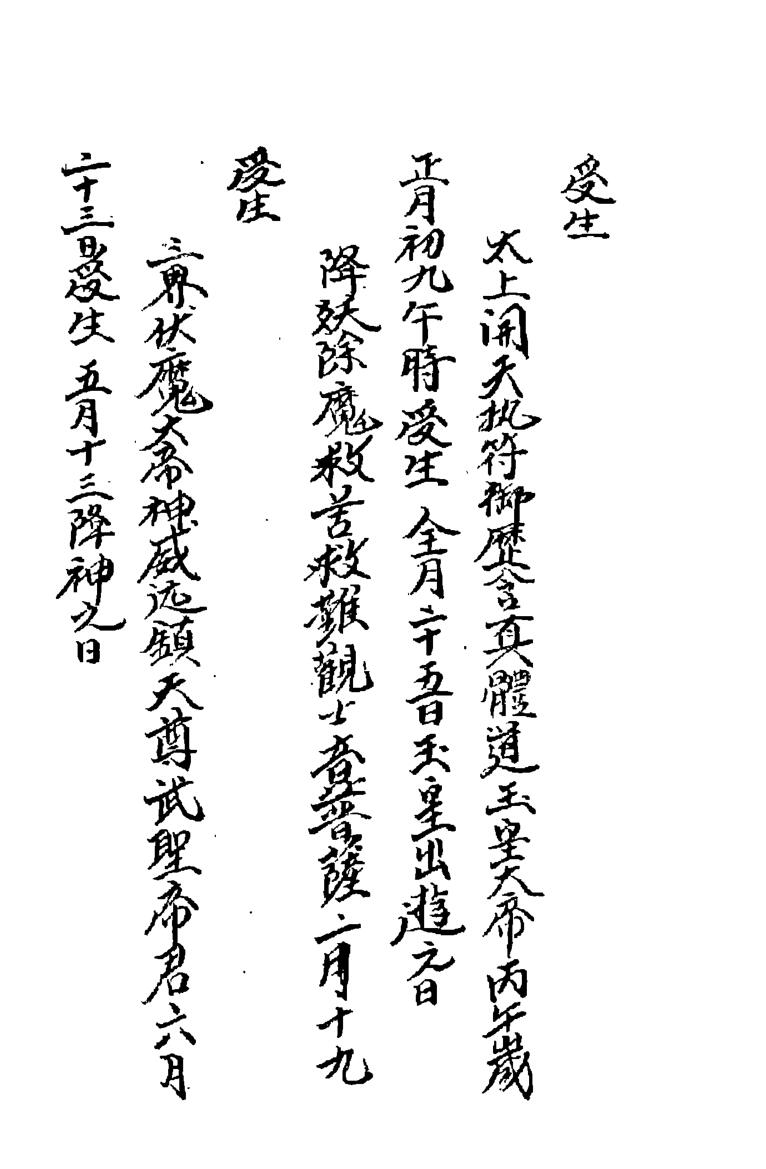 受生
太上開天执符御歷含真體道玉皇大帝丙午歲
正月初九午時受生 仝月二十五日玉皇出遊之日
降妖除魔救苦救難觀士音菩薩二月十九
受生
三界伏魔大帝神威远鎮天尊武聖帝君六月
二十三日受生 五月十三降神之日